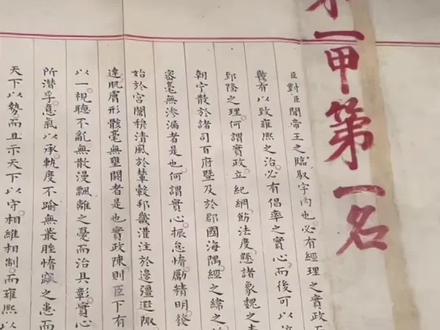 一甲第一名
臣對臣聞帝王之臨馭宇內也必有經理之實政
幾有以致雍熙之治必有倡率之實心而後可以
郅隆之理何謂實政立紀綱飭法度懸諸象魏之
朝宁散於諸司百府暨及於郡國海隅經之緯之
密毫無滲漏者是也何謂實心振怠惰勵精明發
始於宮闈穆清風於輦轂邦畿灌注於邊疆遐陬
達肌膚形骸毫無壅閼者是也實政陳則臣下有
以一視聽不亂無散漫飄離之憂而治具彰實心
所潛孚意氣以承軌度不踰無叢脞惰窳之患而
天下以勢而且示天下以守相維相制而雍熙以